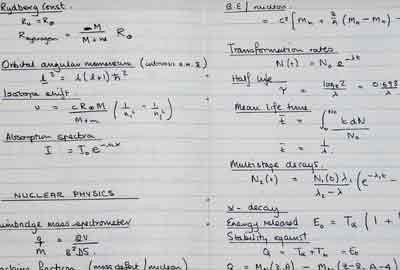 Rydberg Const.
R₀ = R∞
R_hydrogen = M / (M + m) R∞
Orbital angular momentum
l² = l(l+1)ħ²
Isotope shift.
υ = cR∞M / (M+m) (1/n₁² − 1/n₂²)
Absorption spectra
I = I₀e
NUCLEAR PHYSICS
mass spectrometer
q/M = 2V / B²DS.
fraction (mass defect/nucleon)
B.E / nucleon
= c² [Mₙ + (Mₕ − Mₙ) −
Transformation rates
N(t) = N₀ e^−λt
Half life
τ = logₑ2 / λ = 0.693 / λ
Mean life time
t̄ = ∫₀^N₀ t dN / N₀
t̄ = 1/λ
Multistage decays.
N₂(t) = N₁(0) λ₁ / (λ₂ − λ₁) (e^−λ₁t −
α-decay
Energy released E₀ = Tα (1 +
Stability against
Q = Tα + Tb = E₀
Q = (Z,A) − (Z−2, A−4)